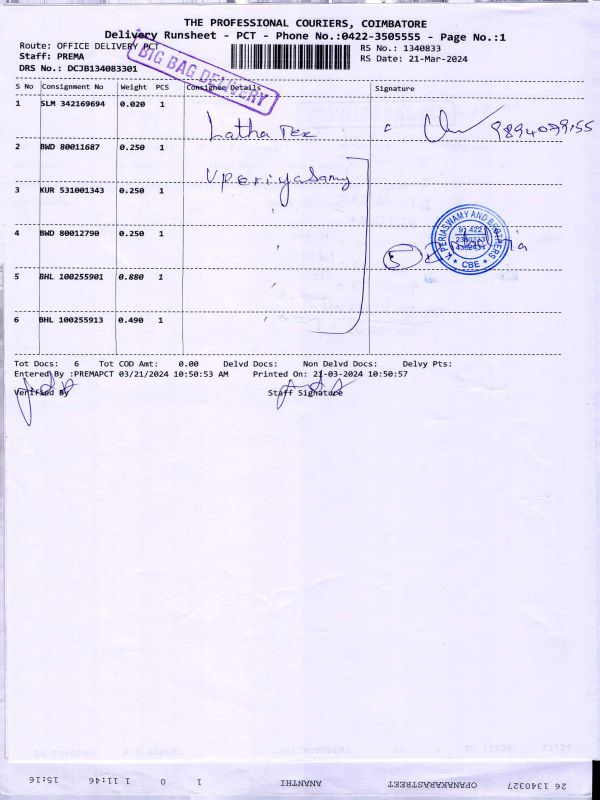 THE PROFESSIONAL COURIERS, COIMBATORE
Delivery Runsheet - PCT - Phone No.:0422-3505555 - Page No.:1
Route: OFFICE DELIVERY PCT
RS No.: 1340833
Staff: PREMA
RS Date: 21-Mar-2024
DRS No.: DCJB134083301
BIG BAG DELIVERY
S No Consignment No Weight PCS Consignee Details Signature
1 SLM 342169694 0.020 1 Latha Tex
2 BWD 80011687 0.250 1 V Periyasamy
3 KUR 531001343 0.250 1
4 BWD 80012790 0.250 1
V. PERIASWAMY AND BROTHERS
CBE
5 BHL 100255901 0.880 1
6 BHL 100255913 0.490 1
Tot Docs: 6 Tot COD Amt: 0.00 Delvd Docs: Non Delvd Docs: Delvy Pts:
Entered By :PREMAPCT 03/21/2024 10:50:53 AM Printed On: 21-03-2024 10:50:57
Verified By Staff Signature
26 1340327 OPANAKARASTREET ANANTHI 1 0 1 11:46 15:16